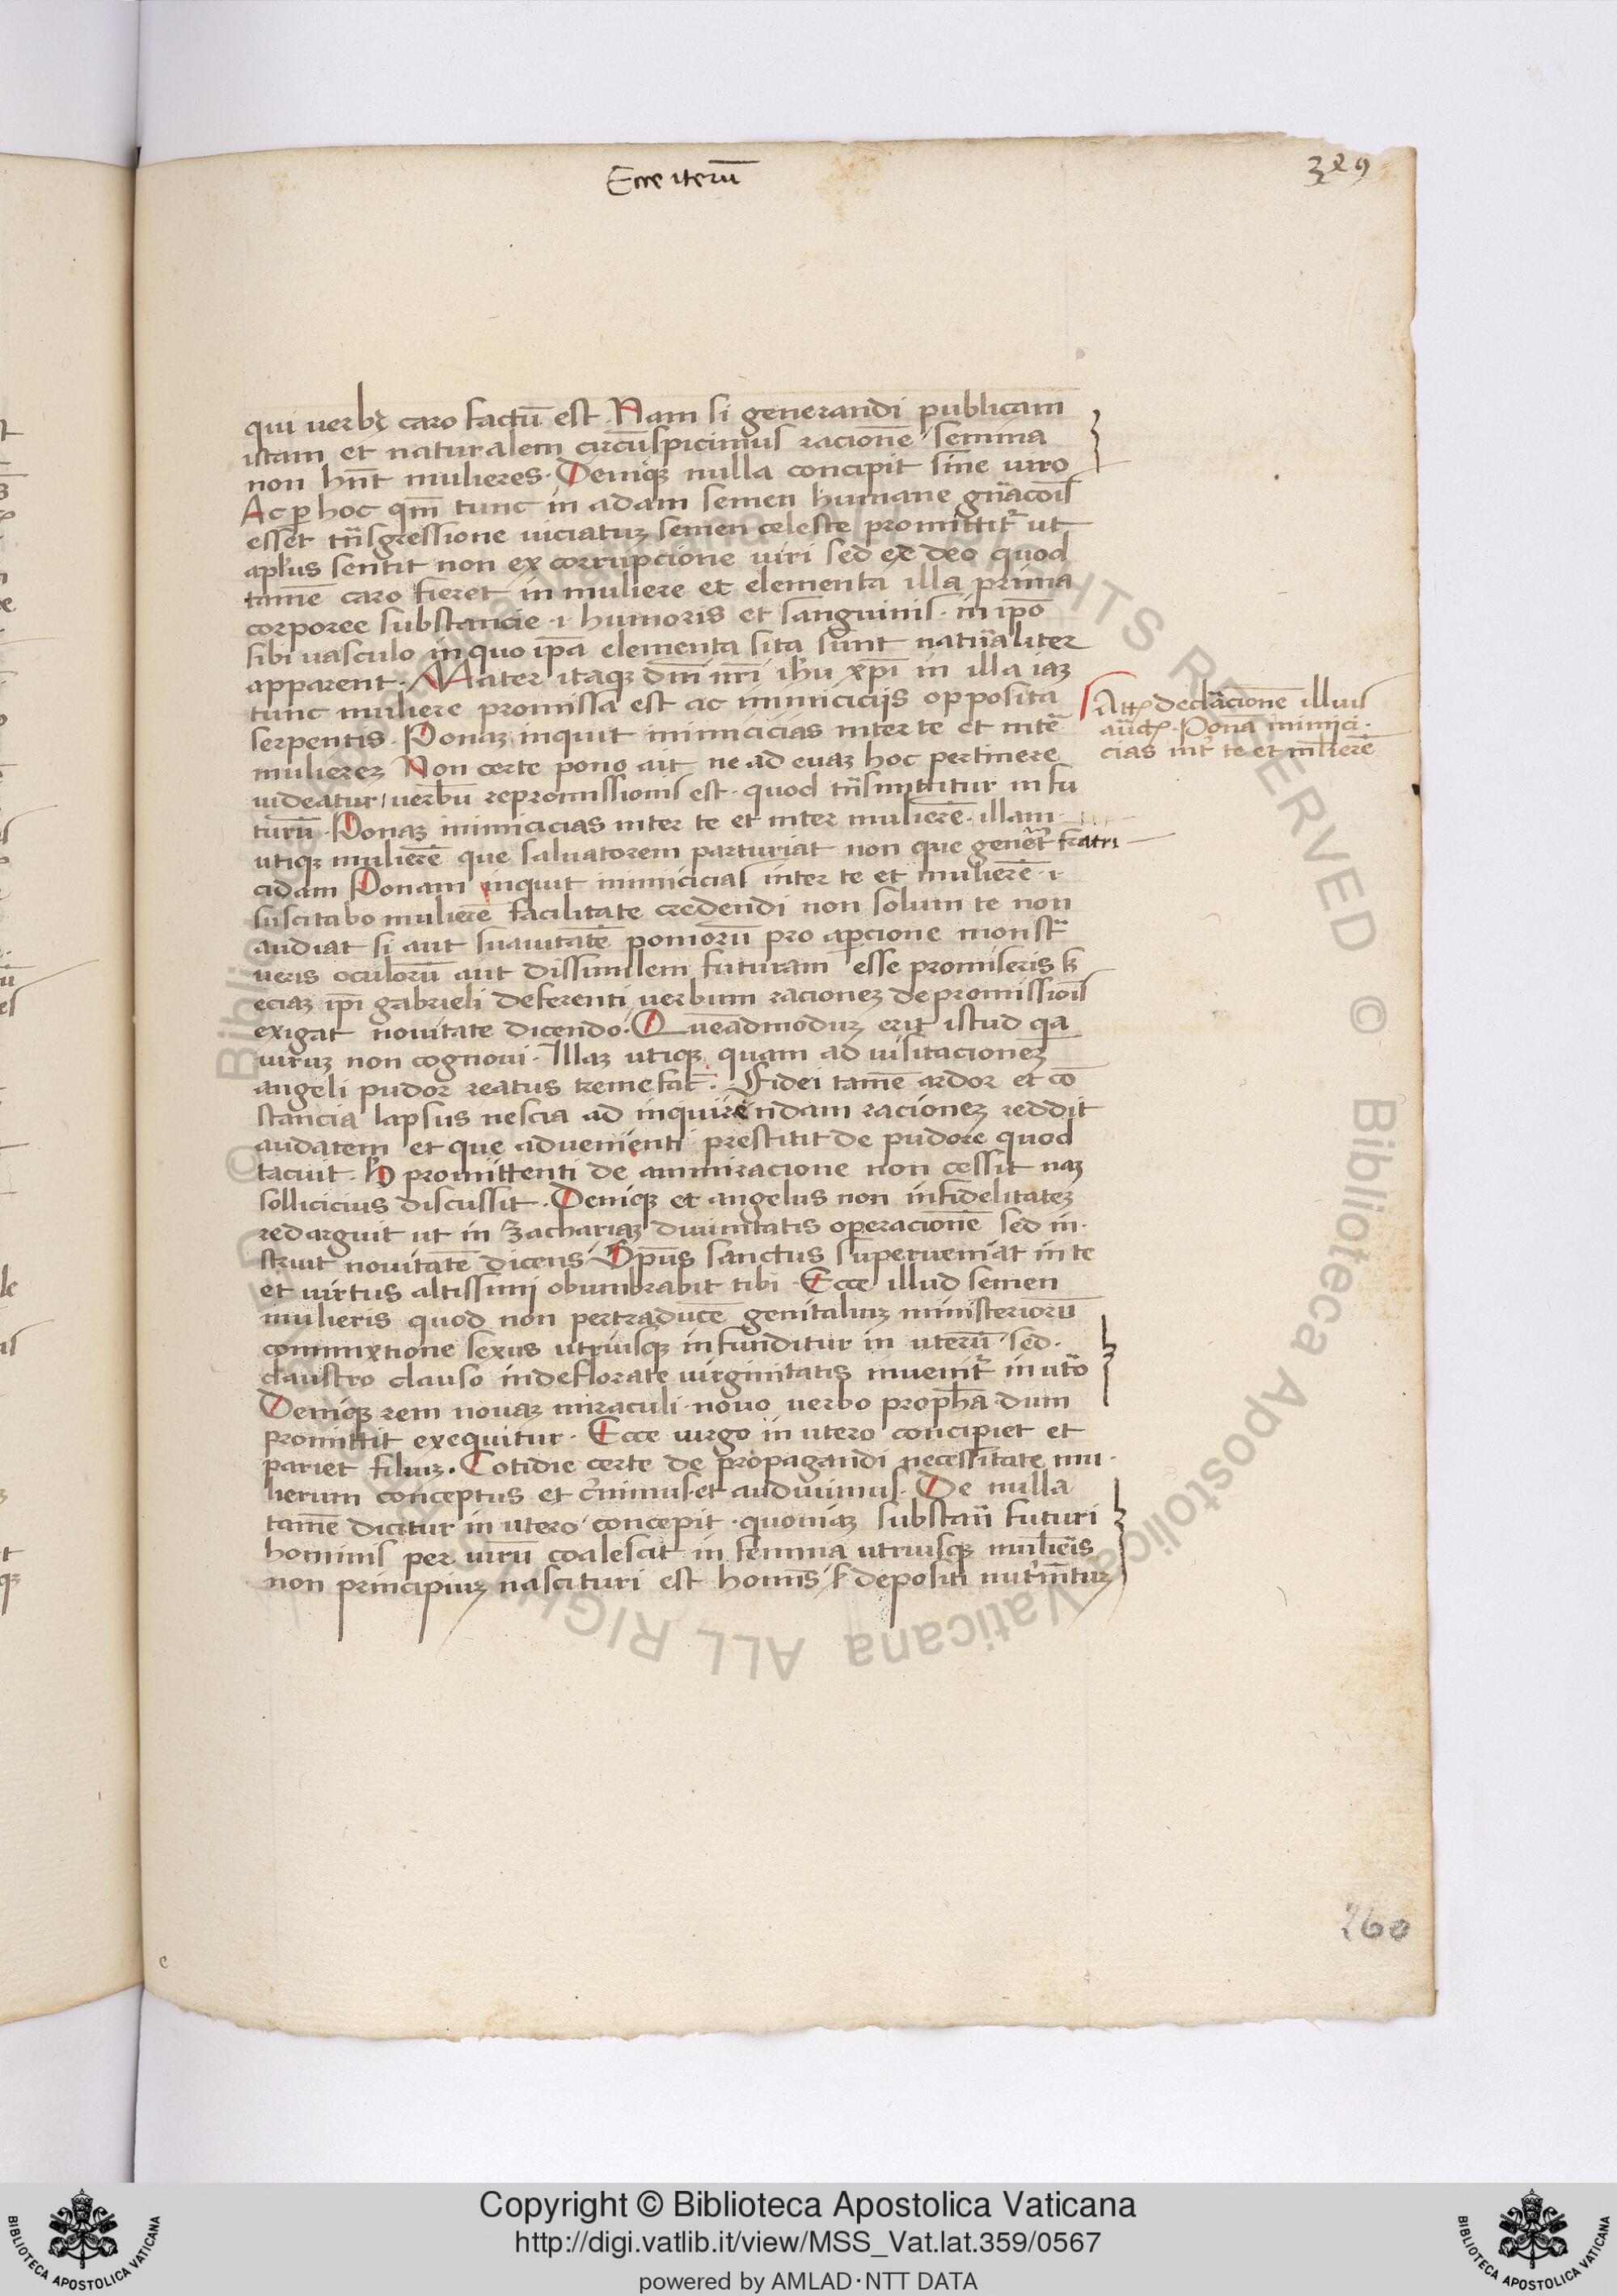 Ecce iterū
329
qui verbū caro factū est. Nam si generandi publicam
istam et naturalem circūspicimus racionē semina
non hn̄t mulieres. Deniqȝ nulla concipit sine uiro
Ac ꝑ hoc qm̄ tunc in adam semen humane gn̄acōis
esset tn̄sgressione uiciatuȝ semen celeste promittit᷑ ut
apl'us sentit non ex corrupcione uiri sed ex deo quod
tamē caro fieret in muliere et elementa illa prima
corporee substancie .i. humoris et sanguinis. in ip̄o
sibi uasculo in quo ip̄a elementa sita sunt natur̄aliter
apparent. Mater itaqȝ dn̄i nr̄i ih̄u xp̄i in illa iaȝ
tunc muliere promissa est ac inimiciciis opposita
serpentis. Ponaȝ inquit inimicicias inter te et intē
muliereȝ Non certe pono ait ne ad euaȝ hoc pertinere
uideatur / uerbū repromissionis est. quod tn̄smittitur in fu
turū. Ponaȝ inimicicias inter te et inter mulierē. illam
utiqȝ mulierē que saluatorem parturiat non que gener̄et fratri
cidam Ponam inquit inimicicias inter te et mulierē .i.
suscitabo mulierē facilitate credendi non solum te non
audiat si aut suauitatē pomorū pro aꝑcione monstra
ueris oculorū aut dissimilem futuram esse promiseris sȝ
eciaȝ ip̄i gabrieli deferenti uerbum racioneȝ de promissiōis
exigat nouitate dicendo. Quēadmoduȝ erit istud qa
uiruȝ non cognoui. Illaȝ utiqȝ quam ad uisitacioneȝ
angeli pudor reatus tremefac̄. Fidei tamē ardor et cō
stancia lapsus nescia ad inquirendam racioneȝ reddit
audatem et que aduenienti prestitit de pudore quod
tacuit. H promittenti de ammiracione non cessit naȝ
sollicicius discussit. Deniqȝ et angelus non infidelitateȝ
redarguit ut in Zachariaȝ diuinitatis operacionē sed in
struit nouitatē dicens Sp̄us sanctus superueniat in te
et uirtus altissimi obumbrabit tibi. Ecce illud semen
mulieris quod non per traducē genitaliuȝ ministeriorū
commixtione sexus utriusqȝ infunditur in uterū sed.
claustro clauso indeflorate uirginitatis inuenit᷑ in utō
Deniqȝ rem nouaȝ miraculi nouo uerbo proph̄a dum
promittit exequitur. Ecce uirgo in utero concipiet et
pariet filiuȝ. Cotidie certe de propagandi necessitate mu
lierum conceptus et c̄nimus. et audiuimus. De nulla
tamē dicitur in utero concepit. quoniaȝ substan̄ futuri
hominis per uirū coalescit in femina utriusqȝ mulieris
non principiuȝ nascituri est homīs sȝ depositi nutrīentuȝ
declaracionē illius
auct. Pona inimici.
cias int᷑ te et ml̄ierē
260
Copyright © Biblioteca Apostolica Vaticana
http://digi.vatlib.it/view/MSS_Vat.lat.359/0567
powered by AMLAD·NTT DATA
BIBLIOTECA APOSTOLICA VATICANA
BIBLIOTECA APOSTOLICA VATICANA
© Biblioteca Apostolica Vaticana ALL RIGHTS RESERVED